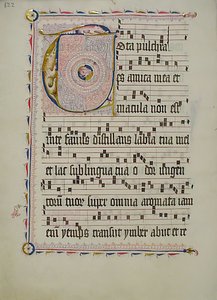 122
Tota pulchra
es amica mea et
macula non est
in te favus distillans labia tua mel
et lac sub lingua tua odor ungen
torum tuorum super omnia aromata iam
enim yemps transiit ymber abiit et re